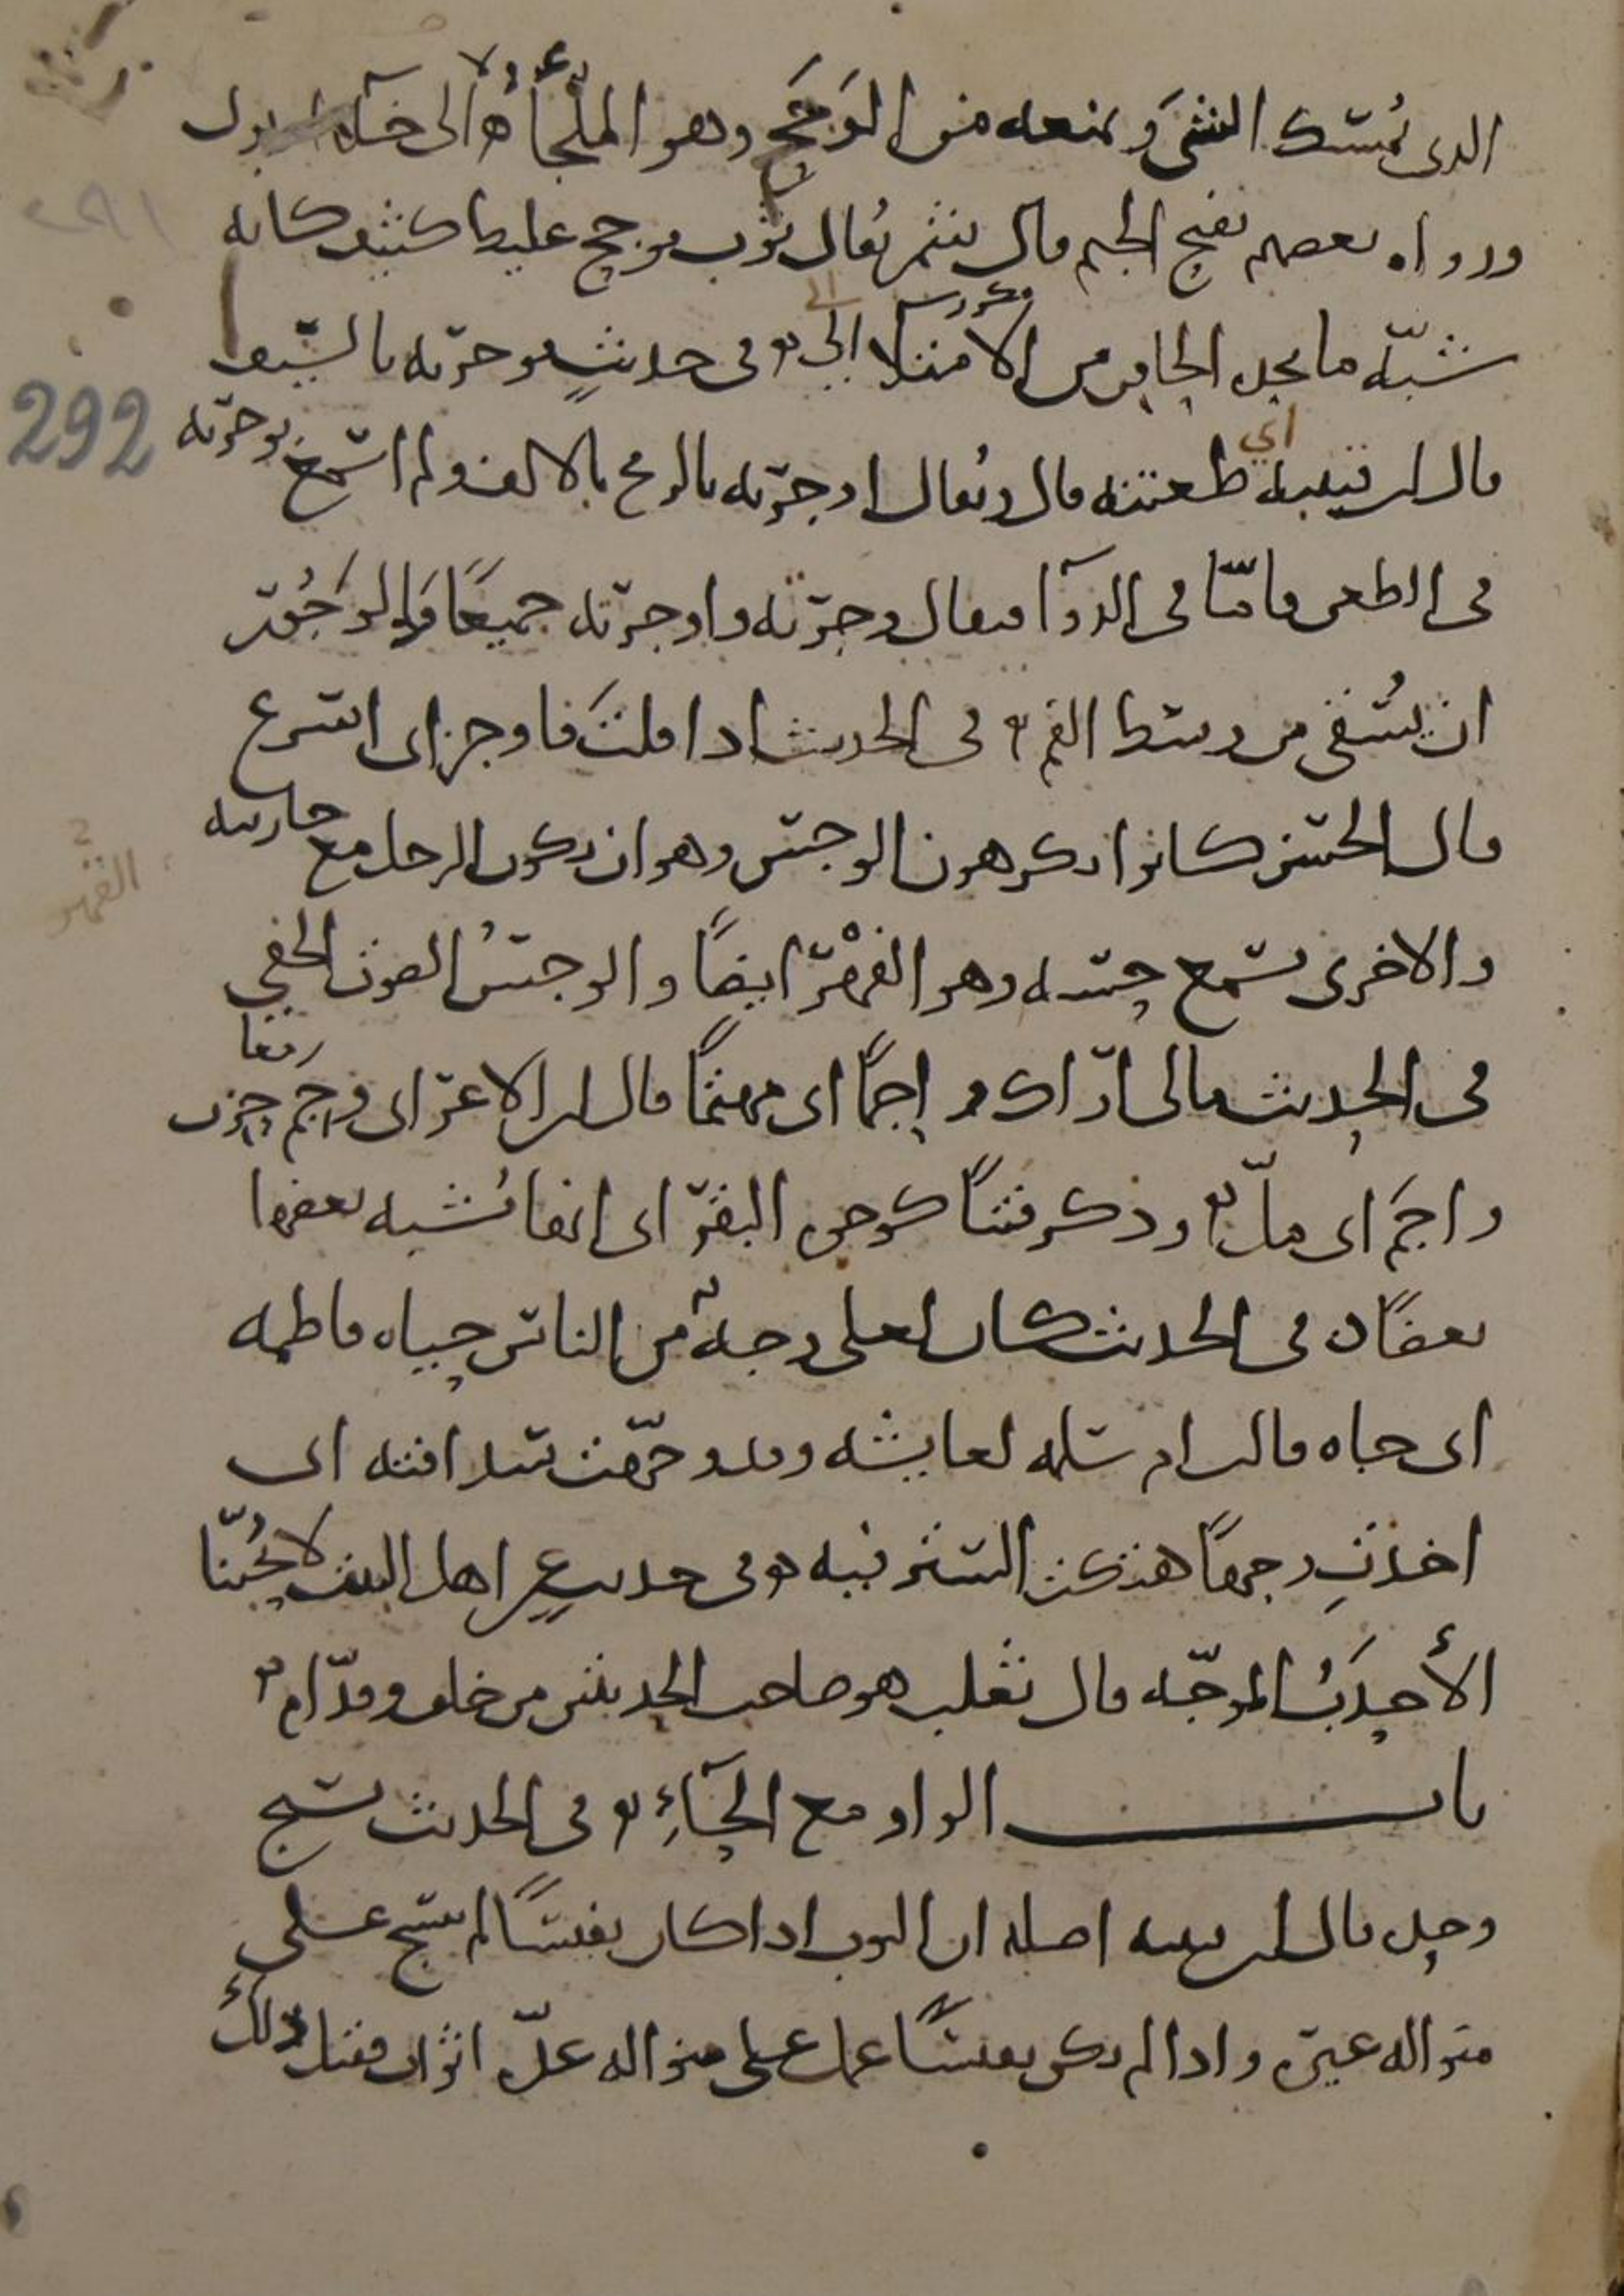 الذى يُمسك الشىَ ويمنعه من الوَجَح وهو الملجأ ه الى بول
ورواه بعضهم بفتح الجيم قال شمر يُقال ثوب موجح غليظ كثيف كانه
شبّه ما يجد الحاقن من الامتلا الى ه فى حديثٍ موجرته بالسّيف
قال ابن قتيبه اي طعنته قال ويُقال اوجرّته بالرمح بالالف ولم اسمع بوجرته
فى الطعن فامّا فى الدوآ فيقال وجرّته واوجرّته جميعًا والوَجُور
ان يُسقى من وسط الفم ه فى الحديث اذا قلتَ فاوجز اى اسرع
قال الحسن كانوا يكرهون الوجس وهو ان يكون الرجل مع جاريته
والاخرى تسمع حسّه وهو الفهْر ايضًا والوجسُ الصوت الخفي
فى الحديث مالى ارّاك واجمًا اى مهتمًا قال ابن الاعرابى وجم حزن
واجَم اى ملّ ه وذكر فتنًا كوجوه البقر اى انها تُشبه بعضها
بعضًا ه فى الحديث كان لعلى وجهٌ من الناس حياه فاطمه
اى جاه قالت ام سلمه لعايشه وقد وجّهت سدافته اى
اخذتِ وجهًا هتكت الستر فيه ه وفى حديثِ اهل البيت لا يُحبّنا
الأحدَبُ الموجّه قال ثعلب هو صاحب الحدبتين من خلف وقدّام ه
باب الواو مع الحَآءِ ه فى الحديث نسيج
وحده قال ابن قتيبه اصله ان الثوب اذا كان نفيسًا لم ينسج على
منواله غيره واذا لم يكن نفيسًا عمل على منواله عدّة اثواب فقيل ذلك
292
القهر